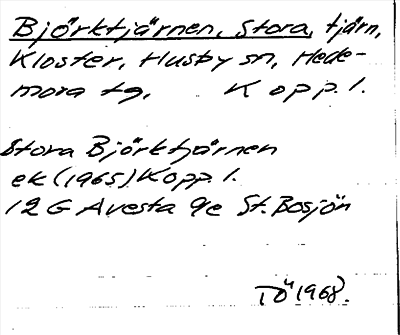 Björktjärnen, Stora, tjärn,
Kloster, Husby sn, Hede-
mora tg, Kopp. l.
Stora Björktjärnen
ek (1965) Kopp. l.
12 G Avesta 9e St. Bosjön
TÖ 1968.